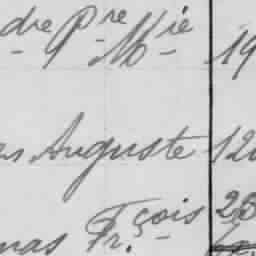 dre Pre Mie 19
es Auguste 12
mas Fr.çois 25